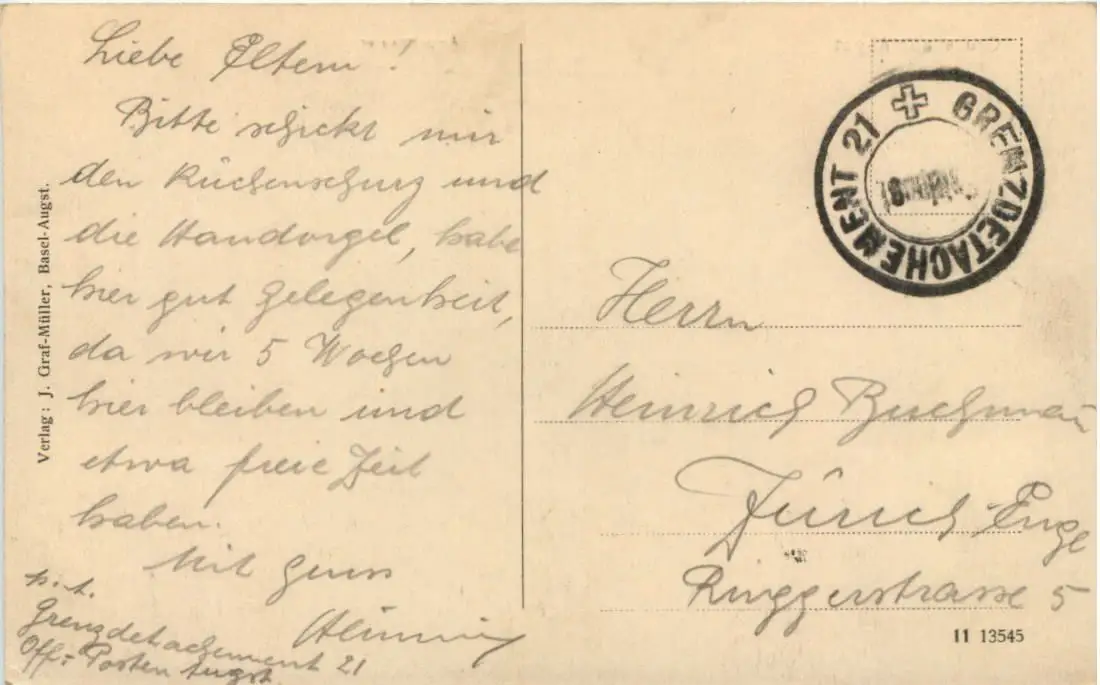 Liebe Eltern!
Bitte schickt mir
den Küchenschurz und
die Handorgel, habe
hier gut Gelegenheit,
da wir 5 Wochen
hier bleiben und
etwa freie Zeit
haben.
Mit Gruss
p. t.
Grenzdetachement 21
Off: Posten Augst.
Verlag: J. Graf-Müller, Basel-Augst.
GRENZDETACHEMENT 21
Herrn
Heinrich
Zürich-Enge
5
11 13545